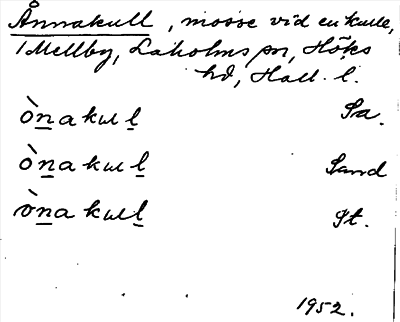 Ånnakull, mosse vid en kulle,
i Mellby, Laholms sn, Höks
hd, Hall. l.
ò̱nakuḻl Sa.
ò̱nakuḻl Sand
ò̱nakuḻl St.
1952.